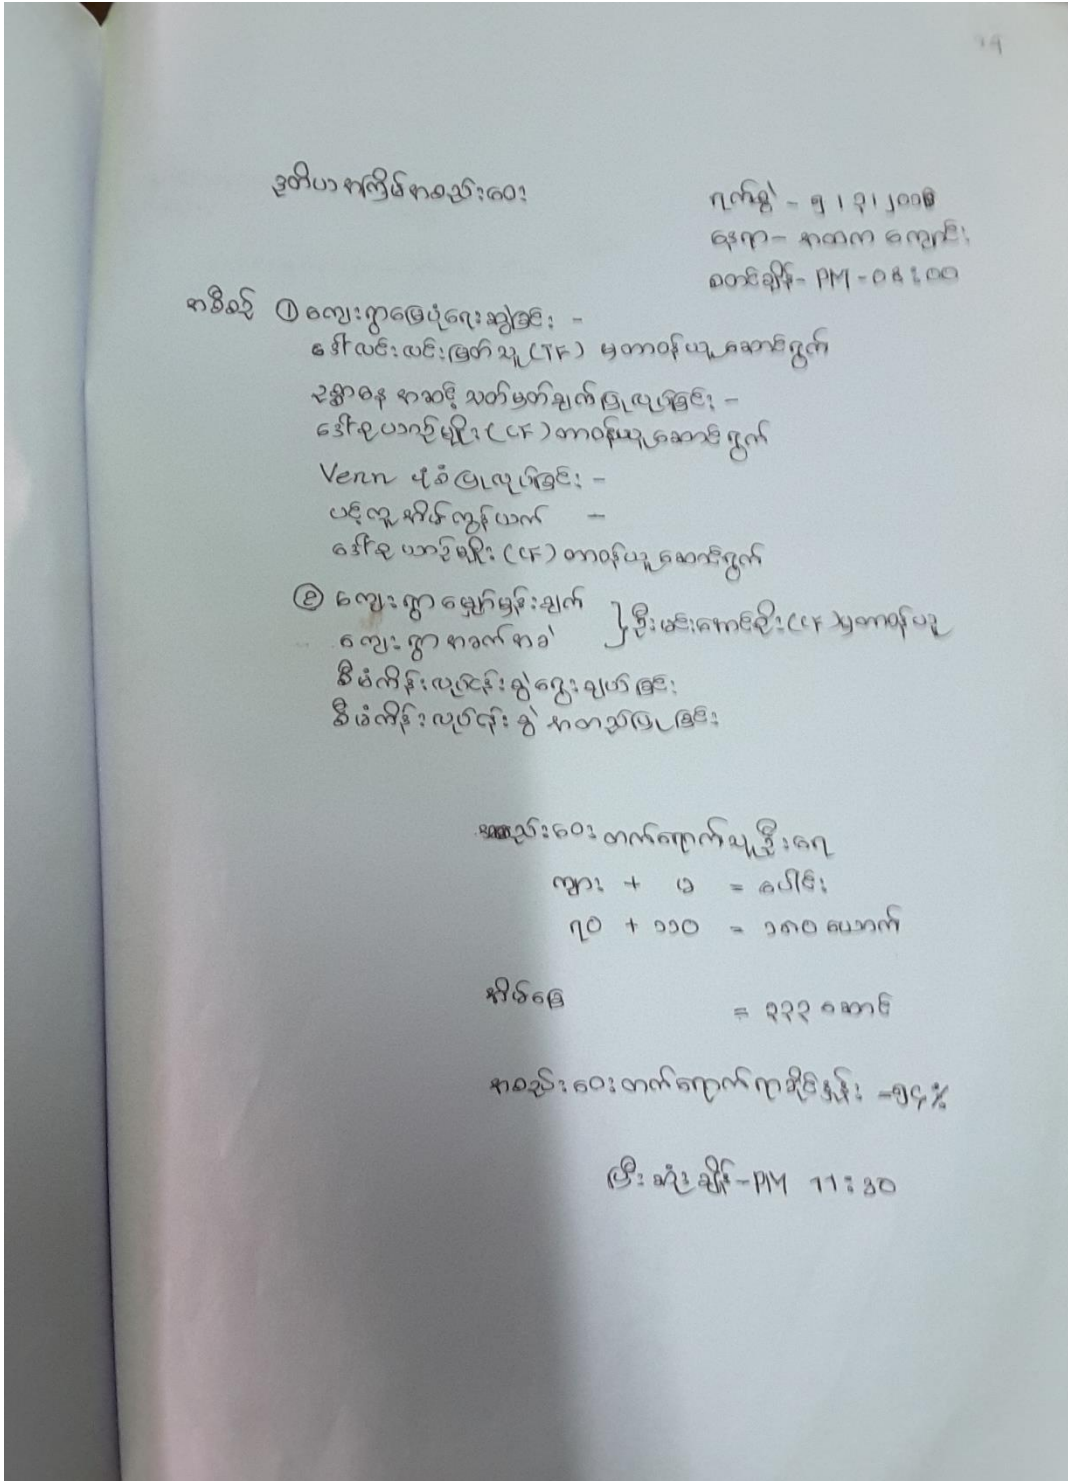 ဒုတိယအကြိမ်အစည်းဝေး
ရက်စွဲ - ၅။၃။၂၀၁၆
နေရာ - အထက ကျောင်း
စတင်ချိန် - PM - 08:00
အစီစဉ် ① ကျေးရွာမြေပုံရေးဆွဲခြင်း -
ဒေါ်လင်းလင်းမြတ်သူ (TF) မှတာဝန်ယူဆောင်ရွက်
ဥစ္စာဓန အဆင့်သတ်မှတ်ချက်ပြုလုပ်ခြင်း -
(CF) တာဝန်ယူဆောင်ရွက်
Venn ပုံစံပြုလုပ်ခြင်း -
ပင့်ကူအိမ်ကွန်ယက် -
(CF) တာဝန်ယူဆောင်ရွက်
② ကျေးရွာမျှော်မှန်းချက်
ကျေးရွာအခက်အခဲ } ဦးမင်းအောင်စိုး (CF) မှတာဝန်ယူ
စီမံကိန်းလုပ်ငန်းခွဲရွေးချယ်ခြင်း
စီမံကိန်းလုပ်ငန်းခွဲ အတည်ပြုခြင်း
အစည်းဝေးတက်ရောက်သူဦးရေ
ကျား + မ = ပေါင်း
၇၀ + ၁၁၀ = ၁၈၀ ယောက်
အိမ်ခြေ = ၃၃၃ ဆောင်
အစည်းဝေးတက်ရောက်ရာခိုင်နှုန်း - ၅၄%
ပြီးဆုံးချိန် - PM 11:30